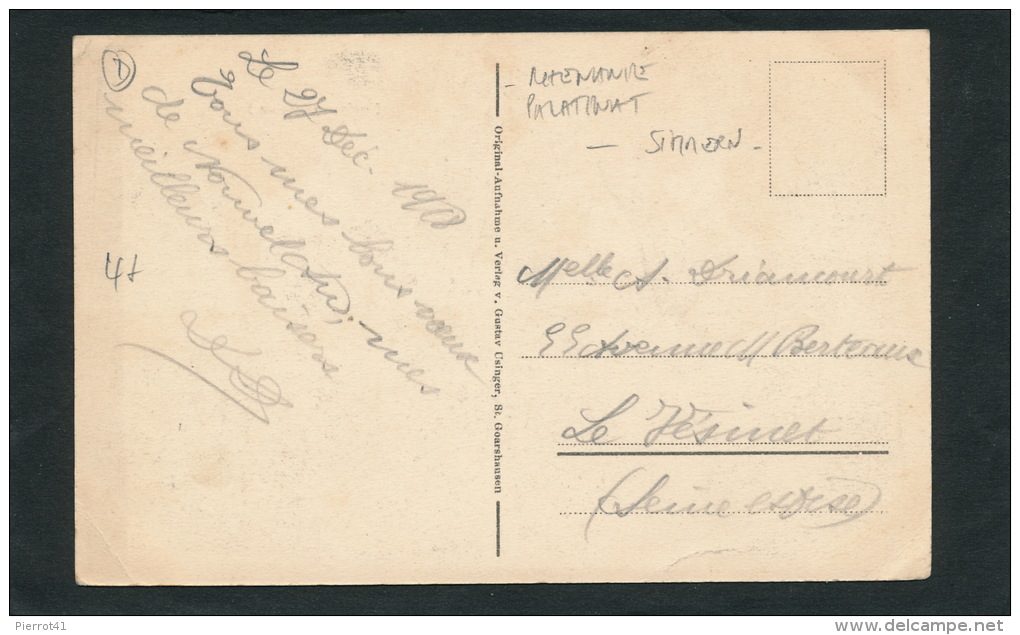 Le 27 Déc. 19
Tous mes bons vœux
de Nouvel An, mes
meilleurs baisers
D
4t
Original-Aufnahme u. Verlag v. Gustav Csinger, St. Goarshausen
- RHENANIE
PALATINAT
- SIMMERN -
Melle A. Driancourt
Avenue M Berteaux
Le Vésinet
(Seine et Oise)
Pierrot41
www.delcampe.net